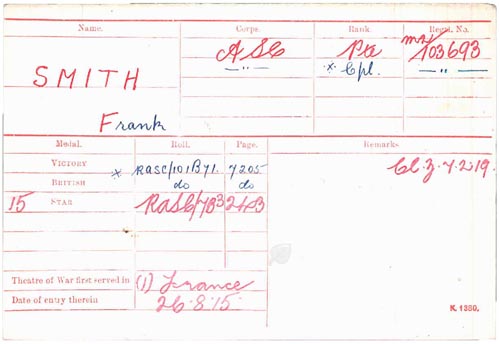 Name. Corps. Rank. Regtl. No.
SMITH ASC Pte M2/103693
Frank —"— * Cpl. —"—
Medal. Roll. Page. Remarks
VICTORY * RASC/101B71. 7205 Cl. Z. 7.2.19.
BRITISH do do
15 STAR RASC/7B3
Theatre of War first served in (1) France
Date of entry therein 26.8.15.
K. 1380.